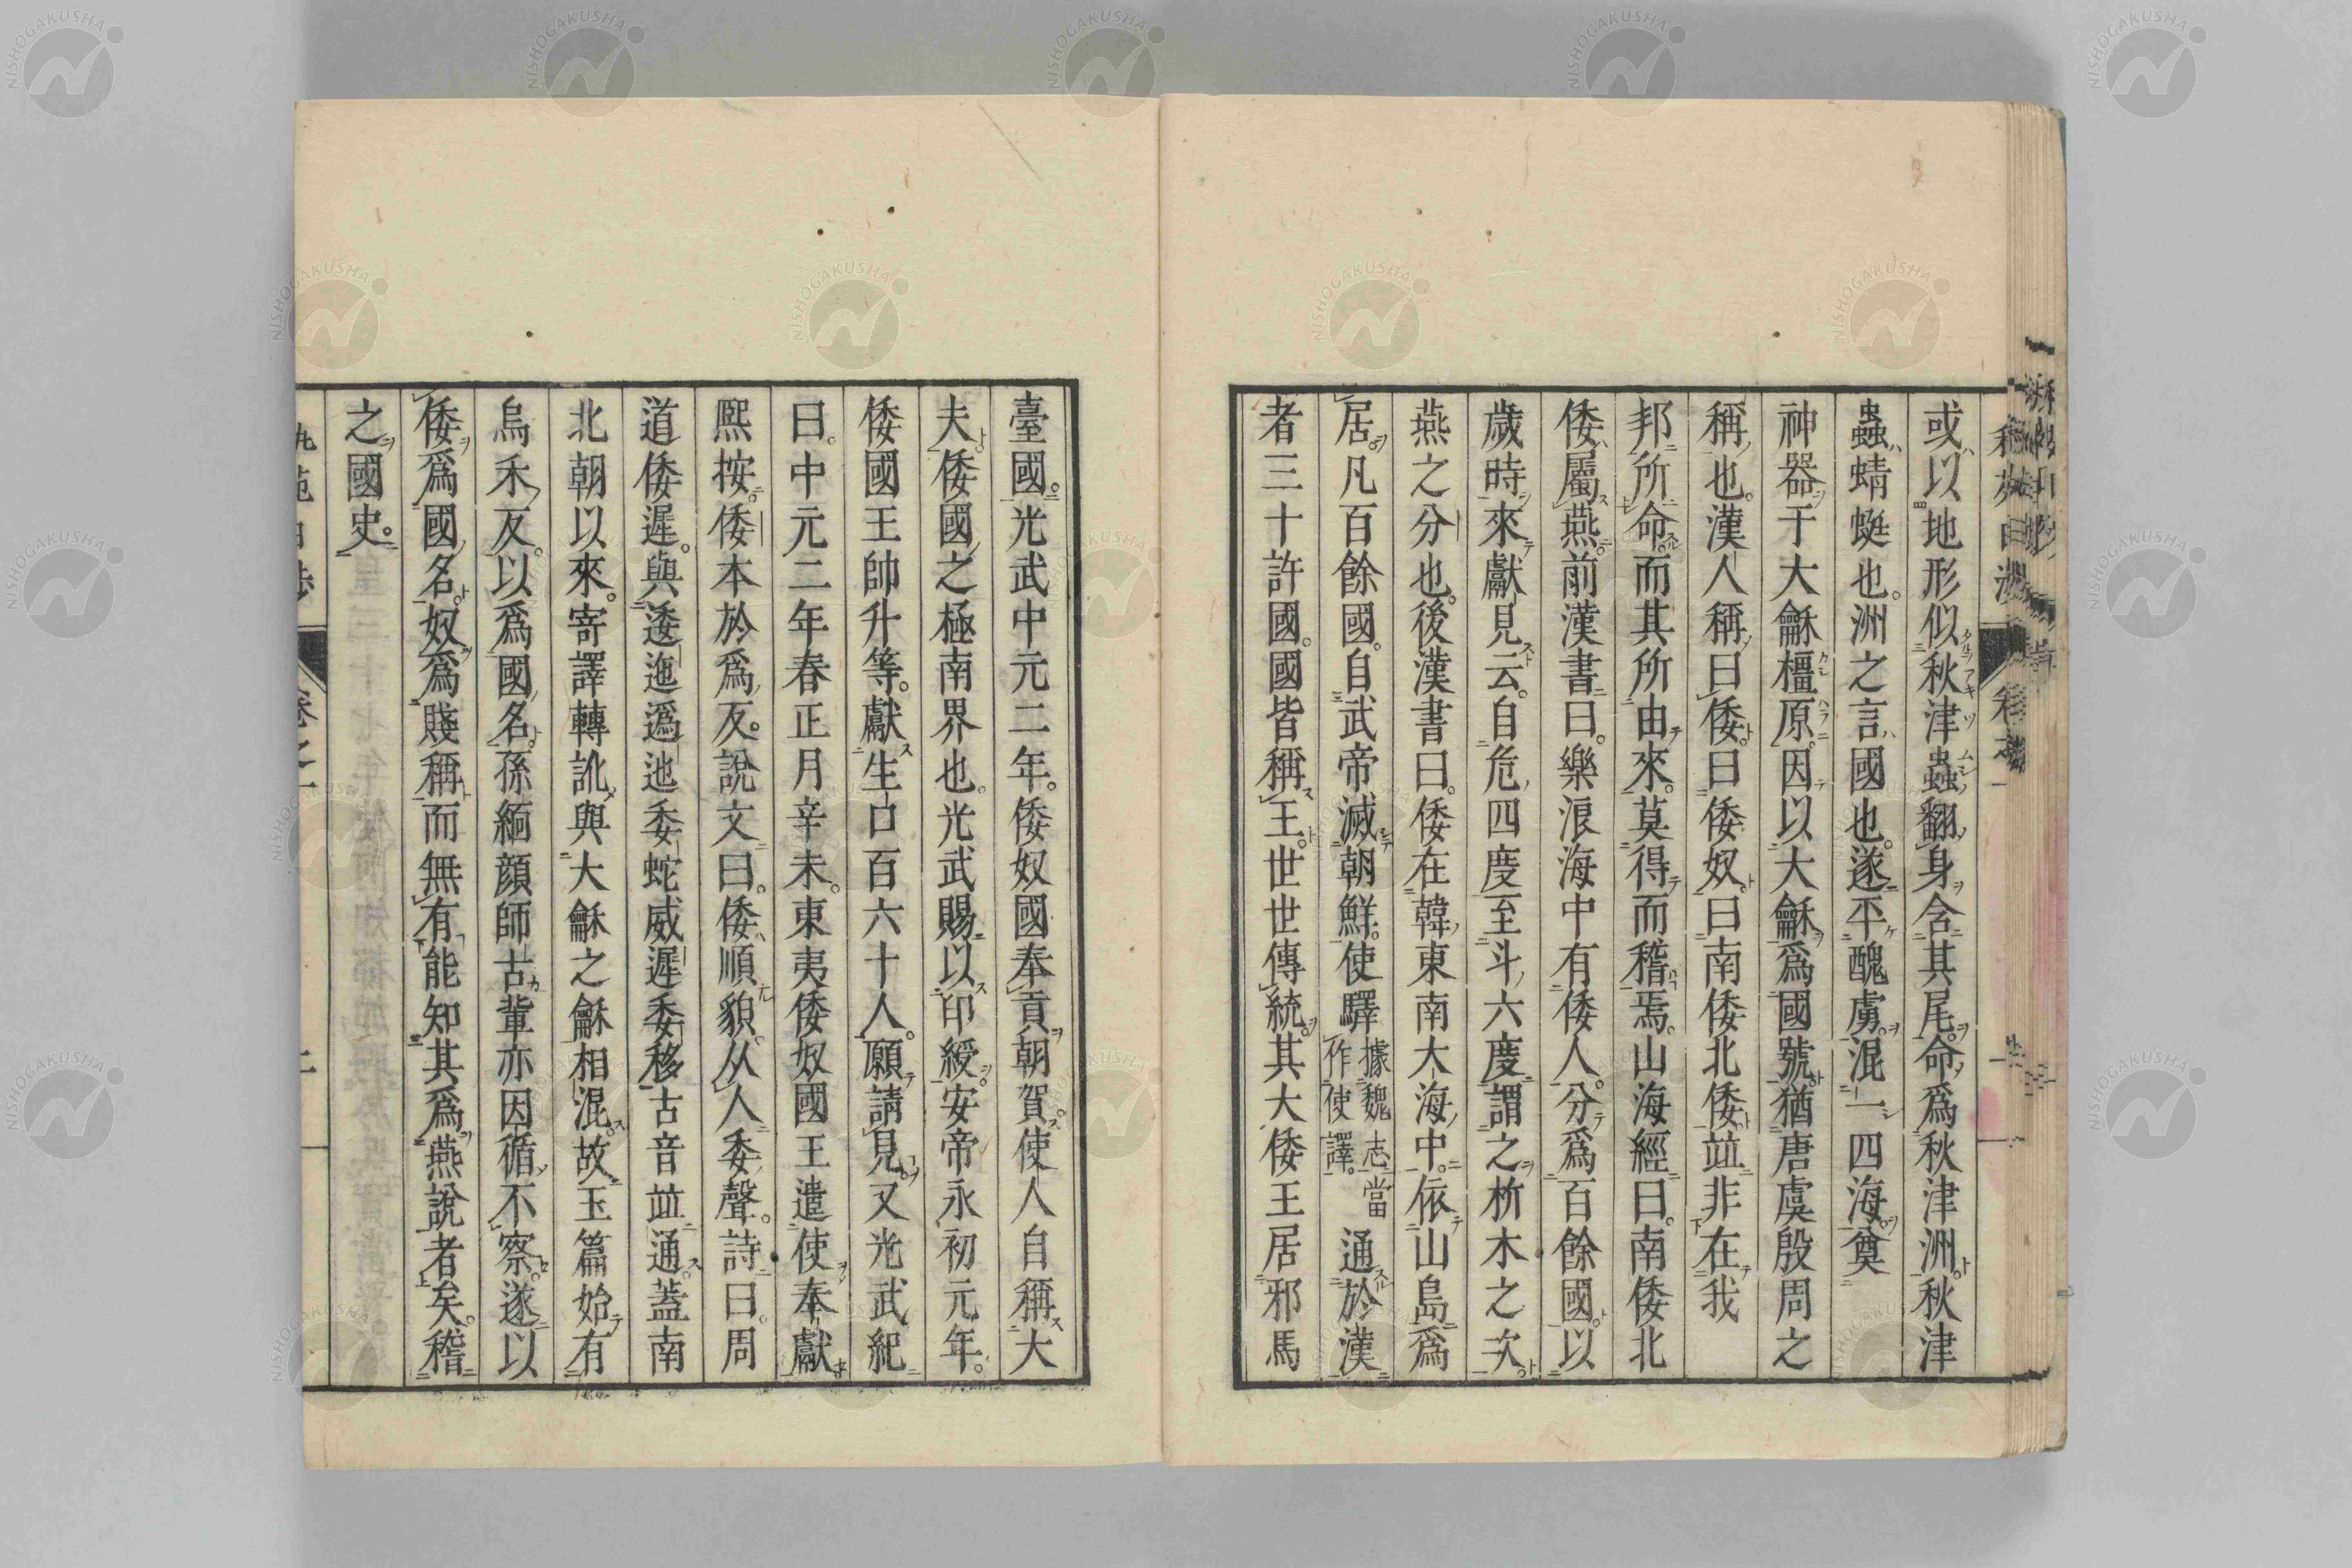 或以地形似秋津蟲翻身含其尾命爲秋津洲秋津
蟲蜻蜓也。洲之言國也。遂平醜虜。混一四海。奠
神器于大龢橿原。因以大龢爲國號。猶唐虞殷周之
稱也。漢人稱曰倭。曰倭奴。曰南倭北倭。竝非在我
邦所命。而其所由來。莫得而稽焉。山海經曰。南倭北
倭屬燕。前漢書曰。樂浪海中有倭人。分爲百餘國。以
歲時來獻見云。自危四度至斗六度。謂之析木之次。
燕之分也。後漢書曰。倭在韓東南大海中。依山島爲
居。凡百餘國。自武帝滅朝鮮。使驛據魏志當作使譯。通於漢
者三十許國。國皆稱王。世世傳統。其大倭王居邪馬
臺國。光武中元二年。倭奴國奉貢朝賀。使人自稱大
夫。倭國之極南界也。光武賜以印綬。安帝永初元年。
倭國王帥升等。獻生口百六十人。願請見。又光武紀
曰。中元二年春正月辛未。東夷倭奴國王遣使奉獻
熙按。倭本於爲反。說文曰。倭順貌。从人委聲。詩曰。周
道倭遲。與逶迤潙池委蛇威遲委移古音竝通。蓋南
北朝以來。寄譯轉訛。與大龢之龢相混。故玉篇始有
烏禾反。以爲國名。孫緬顏師古輩亦因循不察。遂以
倭爲國名。奴爲賤稱。而無有能知其爲燕說者矣。稽
之國史。
NISHOGAKUSHA